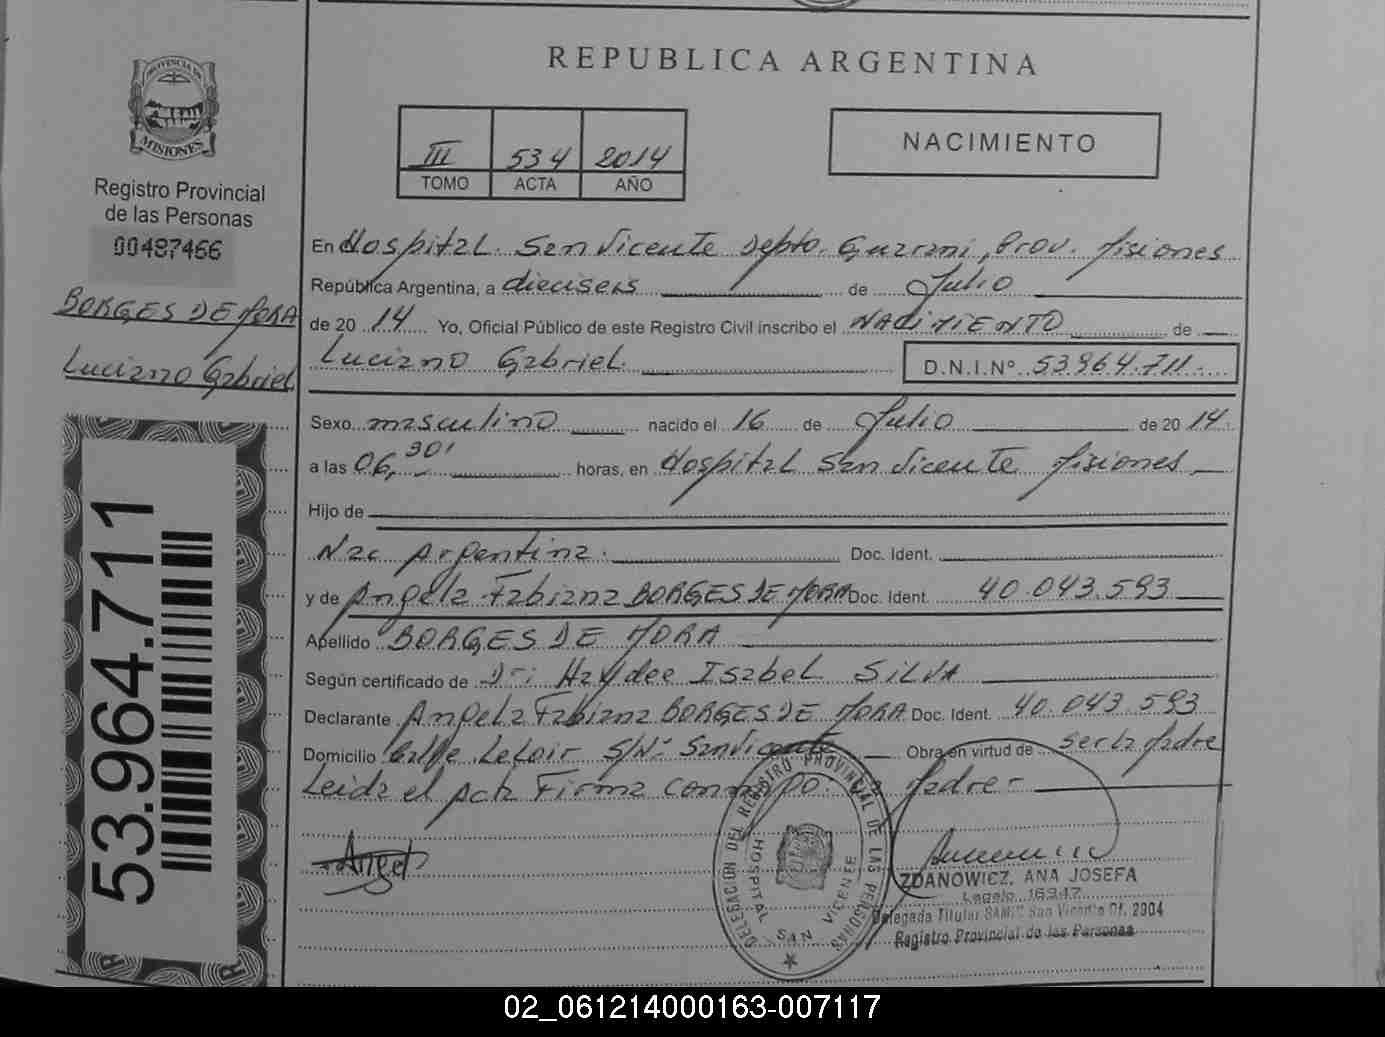 REPUBLICA ARGENTINA
PROVINCIA DE
MISIONES
Registro Provincial
de las Personas
00487466
BORGES DE MORA
Luciano Gabriel
53.964.711
III 534 2014
TOMO ACTA AÑO
NACIMIENTO
En Hospital San Vicente Depto. Guarani, Prov. Misiones
República Argentina, a dieciseis de Julio
de 20 14 Yo, Oficial Público de este Registro Civil inscribo el NACIMIENTO de
Luciano Gabriel D.N.I.Nº 53.964.711
Sexo masculino nacido el 16 de Julio de 20 14
a las 06,30' horas, en Hospital San Vicente Misiones
Hijo de
Nac Argentina. Doc. Ident.
y de Angela Fabiana BORGES DE MORA Doc. Ident. 40.043.593
Apellido BORGES DE MORA
Según certificado de Dr: Haydee Isabel SILVA
Declarante Angela Fabiana BORGES DE MORA Doc. Ident. 40.043.593
Domicilio Calle Leloir S/Nº San Vicente Obra en virtud de ser la Madre
Leida el Acta Firma conmigo. Madre-
Angel
DELEGACION DEL REGISTRO PROVINCIAL DE LAS PERSONAS
HOSPITAL SAN VICENTE
ZDANOWICZ, ANA JOSEFA
Legajo 16947
Delegada Titular San Vicente Of. 2904
Registro Provincial de las Personas
02_061214000163-007117